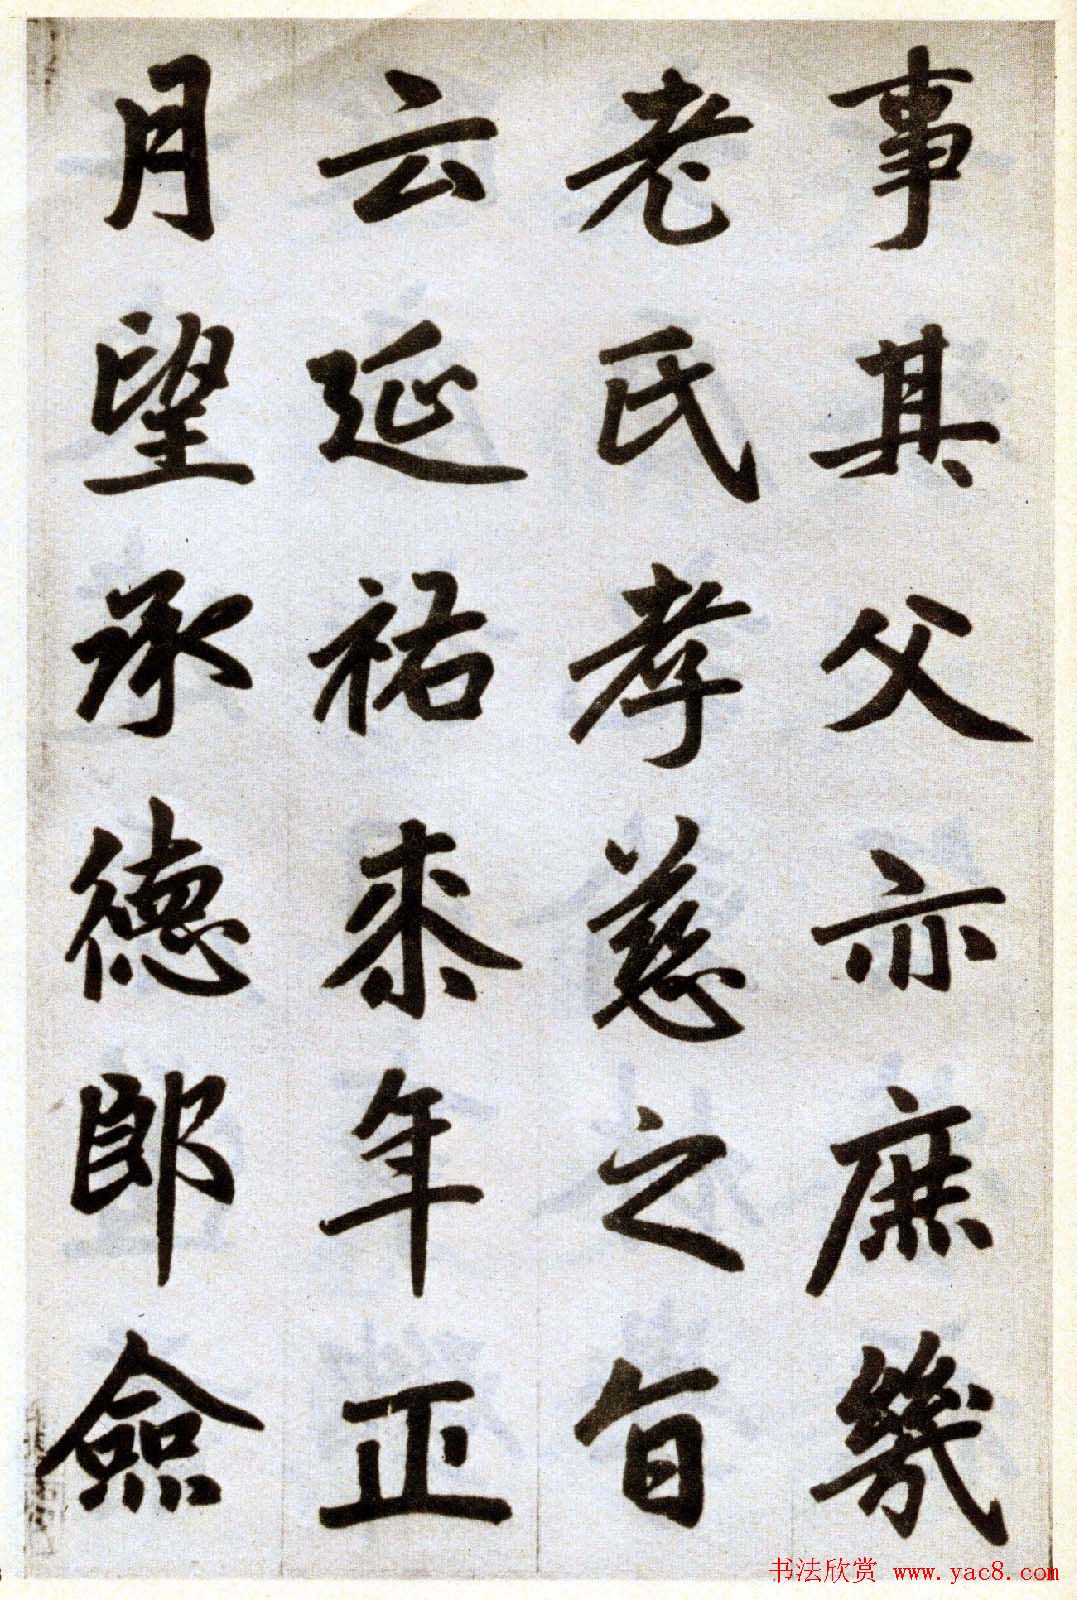 事其父亦庶幾
老氏孝慈之旨
云延祐柒年正
月望承德郎僉
书法欣赏 www.yac8.com